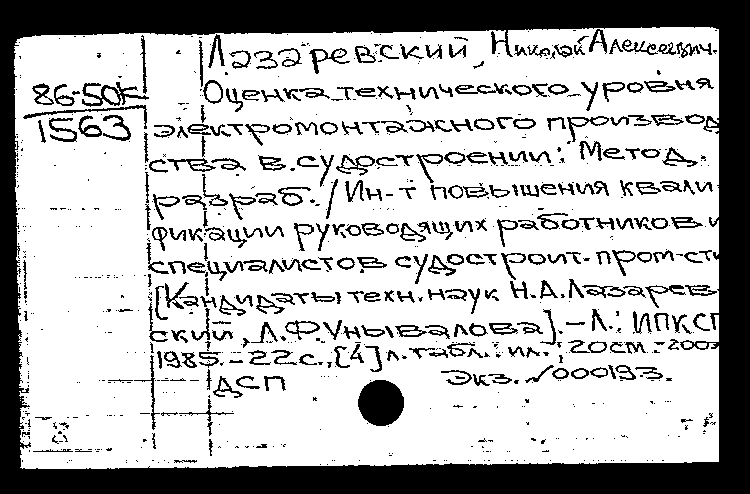 Лазаревский, Николай Алексеевич.
86-50к
1563
Оценка технического уровня
электромонтажного производ
ства в судостроении: Метод.
разраб. / Ин-т повышения квали-
фикации руководящих работников и
специалистов судостроит. пром-сти
[Кандидаты техн. наук Н.А. Лазарев-
ский, Л.Ф. Унывалова]. – Л.: ИПКСП
1985. – 22 с., [4] л. табл.: ил.; 20 см. – 200
ДСП Экз. №000193.
8